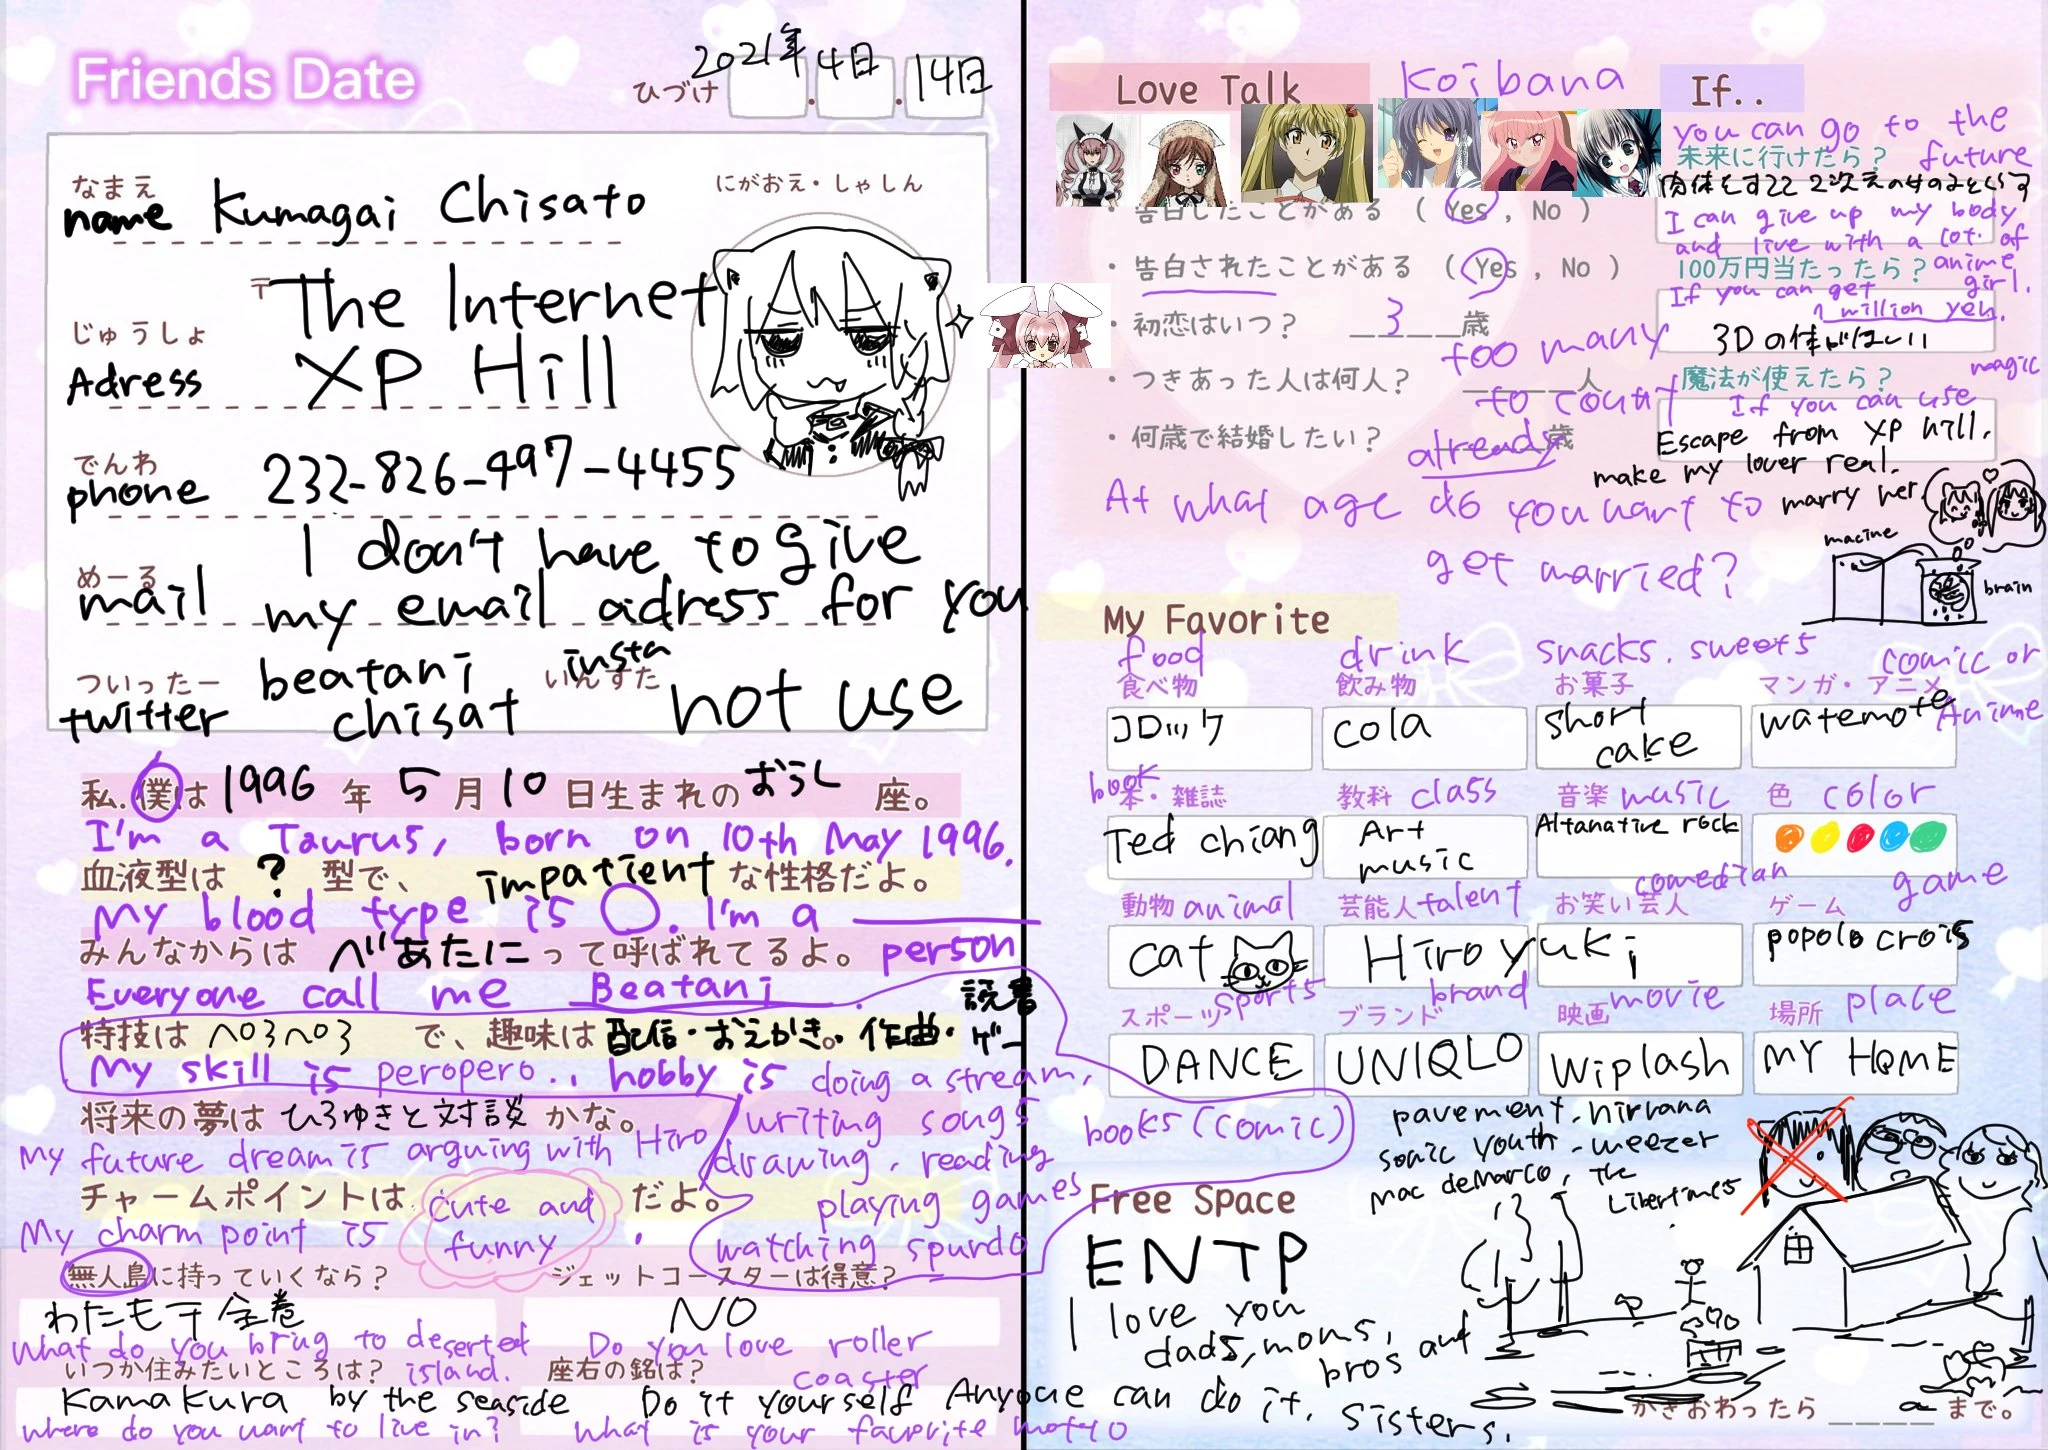 Friends Date
ひづけ 2021年 . 4日 . 14日
なまえ
name Kumagai Chisato
にがおえ・しゃしん
〒 The Internet
じゅうしょ
Adress XP Hill
でんわ
phone 232-826-497-4455
めーる
mail I don't have to give
my email adress for you
ついったー
twitter beatani
chisat
いんすた
insta not use
私.僕は 1996 年 5 月 10 日生まれの おうし 座。
I'm a Taurus, born on 10th May 1996.
血液型は ? 型で、 impatient な性格だよ。
My blood type is ○. I'm a ____ person
みんなからは べあたに って呼ばれてるよ。
Everyone call me Beatani.
特技は ペロペロ で、趣味は 配信・おえかき。作曲・読書 ゲー
My skill is peropero.. hobby is doing a stream,
writing songs
drawing, reading books (comic)
playing games
watching spurdo
将来の夢は ひろゆきと対談 かな。
My future dream is arguing with Hiro
チャームポイントは cute and funny だよ。
My charm point is .
無人島に持っていくなら?
わたモテ全巻
What do you bring to deserted island.
ジェットコースターは得意?
NO
Do you love roller coaster
いつか住みたいところは?
Kamakura by the seaside
where do you want to live in?
座右の銘は?
Do it yourself Anyone can do it.
What is your favorite motto
Love Talk Koibana
・告白したことがある ( Yes , No )
・告白されたことがある ( Yes , No )
・初恋はいつ? 3 歳
・つきあった人は何人? ____人
too many
to count
・何歳で結婚したい? ____歳
already
At what age do you want to
get married?
If..
you can go to the future
未来に行けたら?
I can give up my body
and live with a lot of
anime girl.
100万円当たったら?
If you can get
1 million yen.
3Dの体がほしい
魔法が使えたら?
If you can use magic
Escape from XP hill.
make my lover real.
marry her
macine
brain
My Favorite
food
食べ物
コロッケ
drink
飲み物
cola
snacks. sweets
お菓子
short cake
comic or Anime
マンガ・アニメ
watemote
book
本・雑誌
Ted chiang
教科 class
Art
music
音楽 music
Altanative rock
色 color
動物 animal
cat
芸能人 talent
Hiroyuki
お笑い芸人 comedian
ゲーム game
popolo crois
スポーツ sports
DANCE
ブランド brand
UNIQLO
映画 movie
Wiplash
場所 place
MY HOME
pavement. nirvana
sonic youth - weezer
mac demarco, the
Libertines
Free Space
ENTP
I love you
dads, moms,
bros and
sisters.
かきおわったら ____ まで。